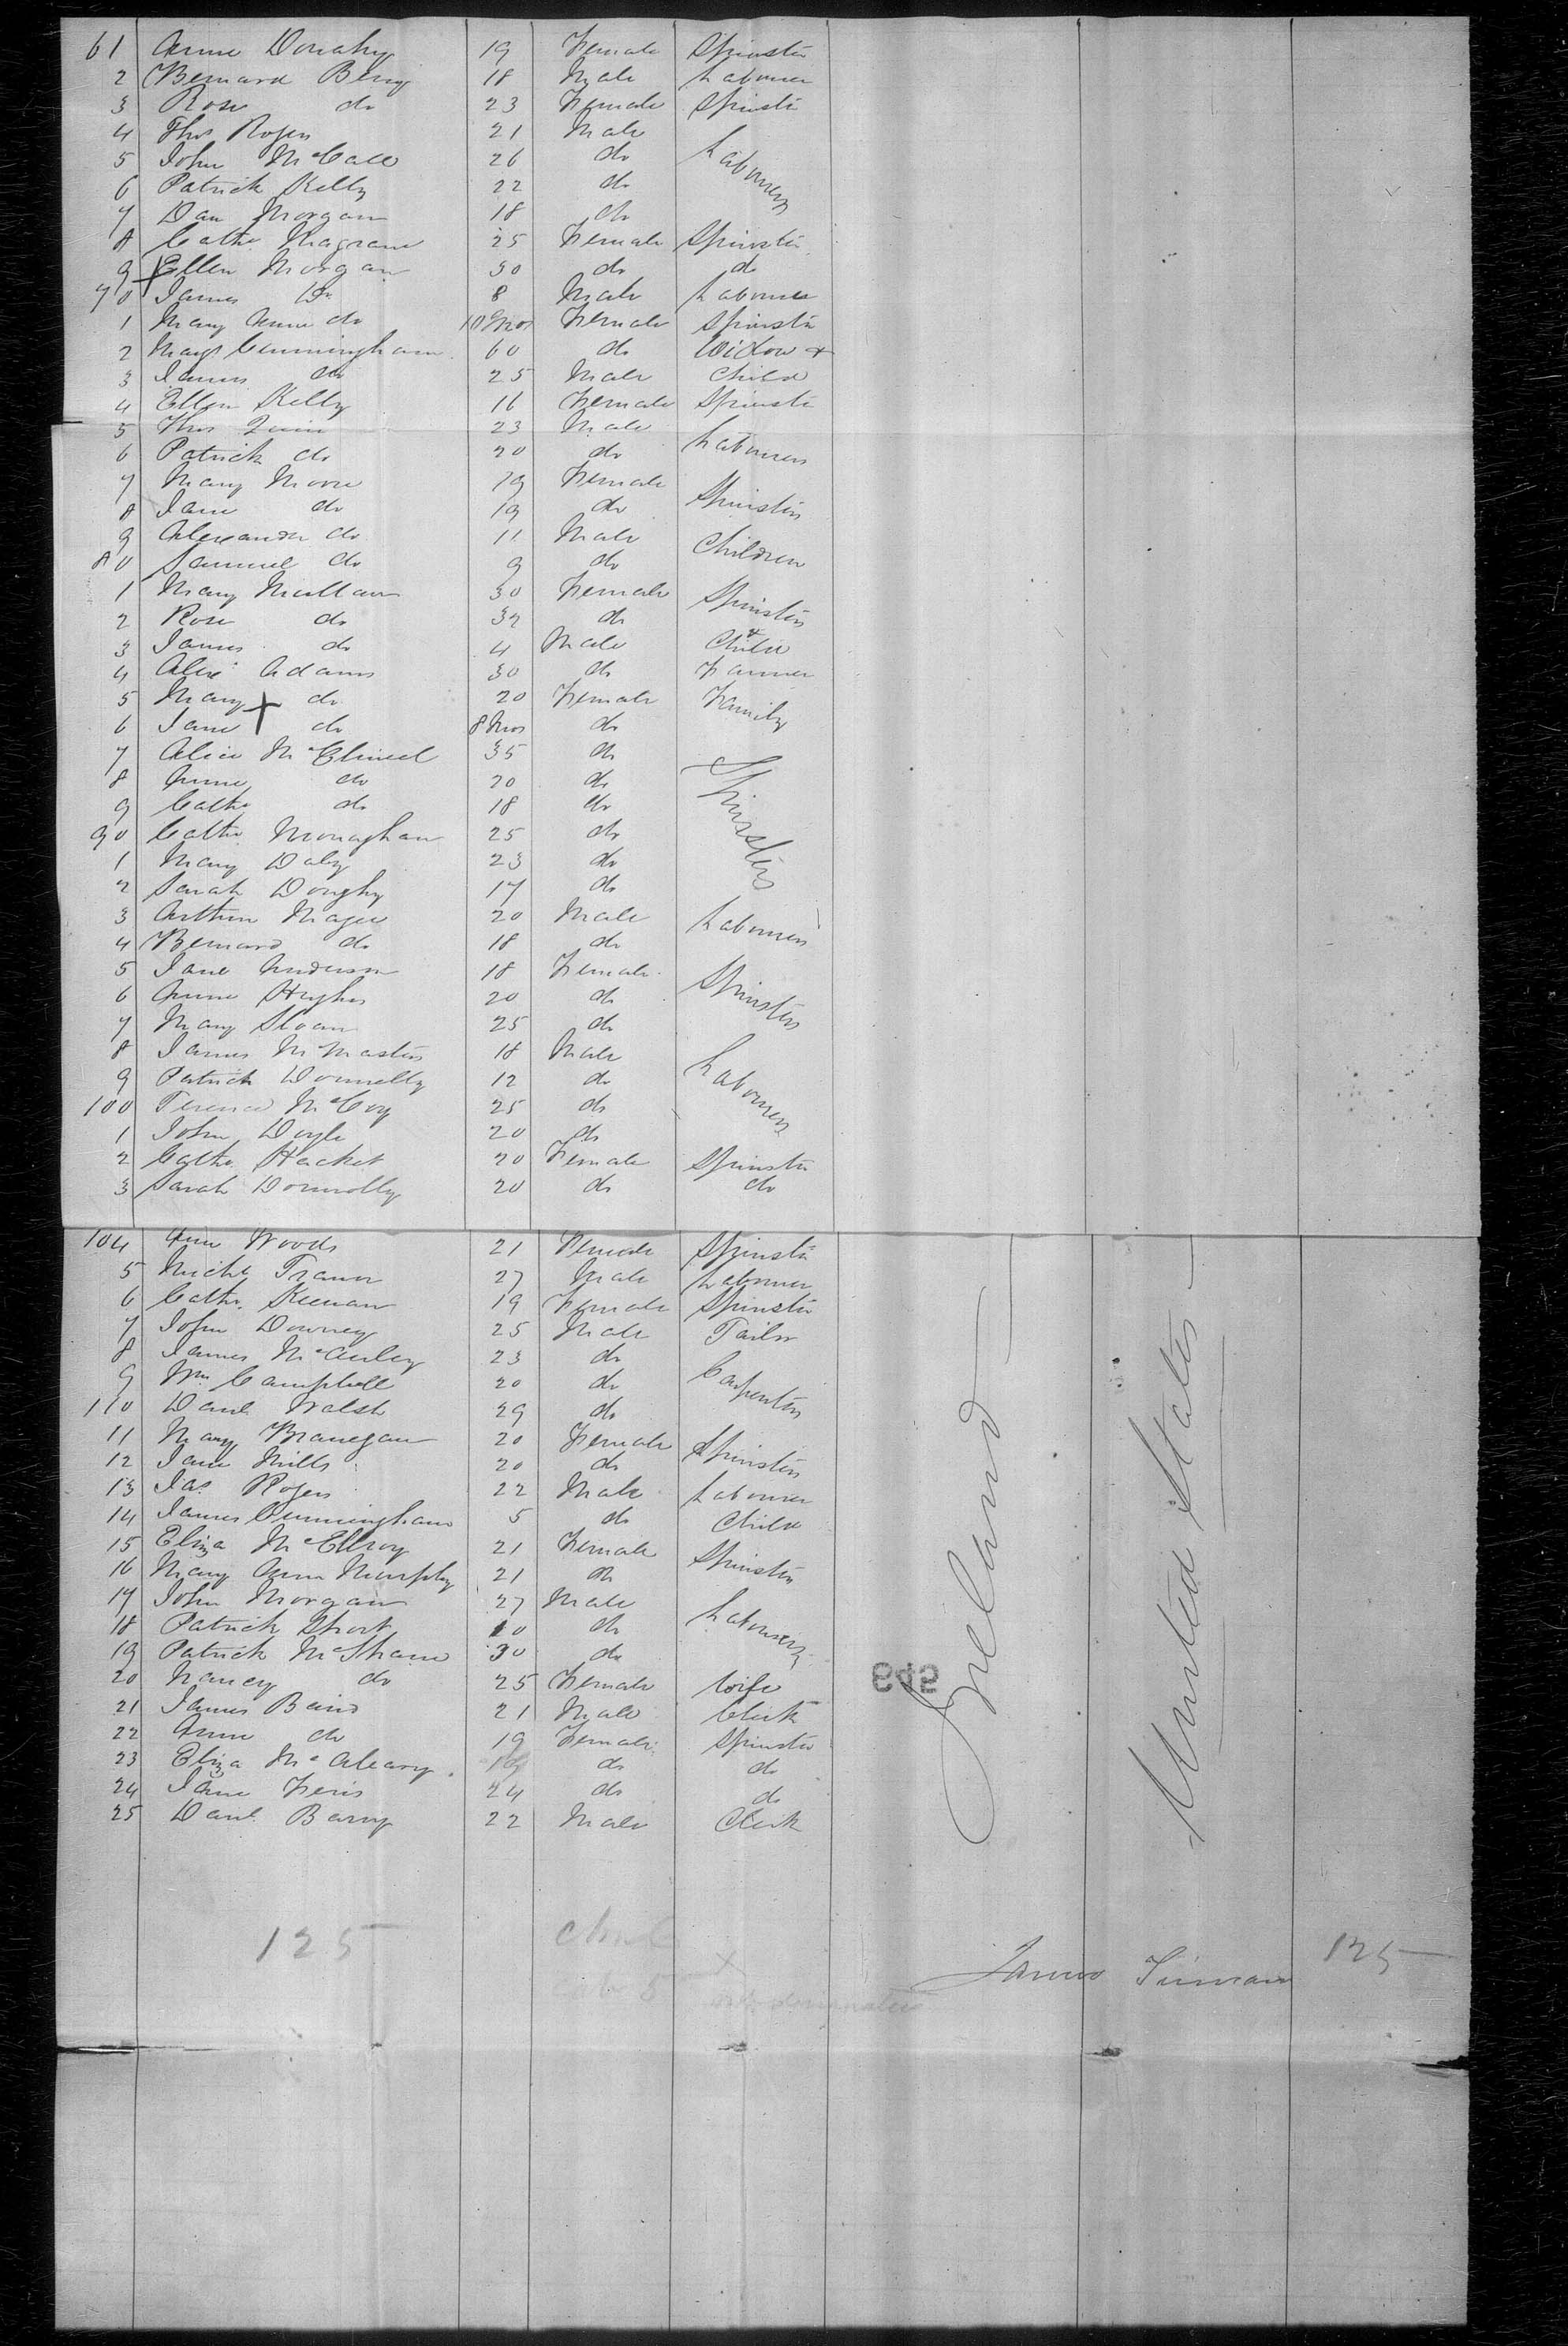 61 Anne Donahy 19 Female Spinster
2 Bernard Berry 18 Male Labourer
3 Rose do 23 Female Spinster
4 Thos Rogers 21 Male
5 John McCall 26 do Labourers
6 Patrick Kelly 22 do
7 Dan Morgan 18 do
8 Cathe Magrane 25 Female Spinster
9 Ellen Morgan 30 do do
70 James Do 8 Male Labourer
1 Mary Anne do 10 Mos Female Spinster
2 Mary Cunningham 60 do Widow +
3 James do 25 Male Child
4 Ellen Kelly 16 Female Spinster
5 Thos Quin 23 Male
6 Patrick do 20 do Labourers
7 Mary Moore 19 Female
8 Jane do 19 do Spinsters
9 Alexander do 11 Male
80 Samuel do 9 do Children
1 Mary Mullan 30 Female
2 Rose do 32 do Spinsters
3 James do 4 Male + Child
4 Alex Adams 30 do Farmer
5 Mary do 20 Female Family
6 Jane do 8 Mos do
7 Alice 35 do
8 Anne do 20 do Spinsters
9 Cathe do 18 do
90 Cathe Monaghan 25 do
1 Mary Daly 23 do
2 Sarah Doughy 17 do
3 Arthur Magee 20 Male
4 Bernard do 18 do Labourers
5 Jane Anderson 18 Female
6 Anne Hughes 20 do Spinsters
7 Mary Sloan 25 do
8 James McMaster 18 Male
9 Patrick Donnelly 12 do Labourers
100 Terence McCoy 25 do
1 John Doyle 20 do
2 Cathe Hacket 20 Female Spinster
3 Sarah Donnolly 20 do do
104 Ann Woods 21 Female Spinster
5 Michl Franor 27 Male Labourer
6 Cathe Keenan 19 Female Spinster
7 John Downey 25 Male Tailor
8 James McAuley 23 do
9 Wm Campbell 20 do Carpenters
110 Danl Walsh 29 do
11 Mary Branegan 20 Female
12 Jane Mills 20 do Spinsters
13 Jas Rogers 22 Male Labourer
14 James Cunningham 5 do Child
15 Eliza McElroy 21 Female
16 Mary Ann Murphy 21 do Spinsters
17 John Morgan 27 Male
18 Patrick Short 10 do Labourers
19 Patrick McShane 30 do
20 Nancy do 25 Female Wife
21 James Baird 21 Male Clerk
22 Anne do 19 Female Spinster
23 Eliza McAleary do do
24 Jane Feris 24 do do
25 Danl Barry 22 Male Clerk
Ireland
United States
125
James 125